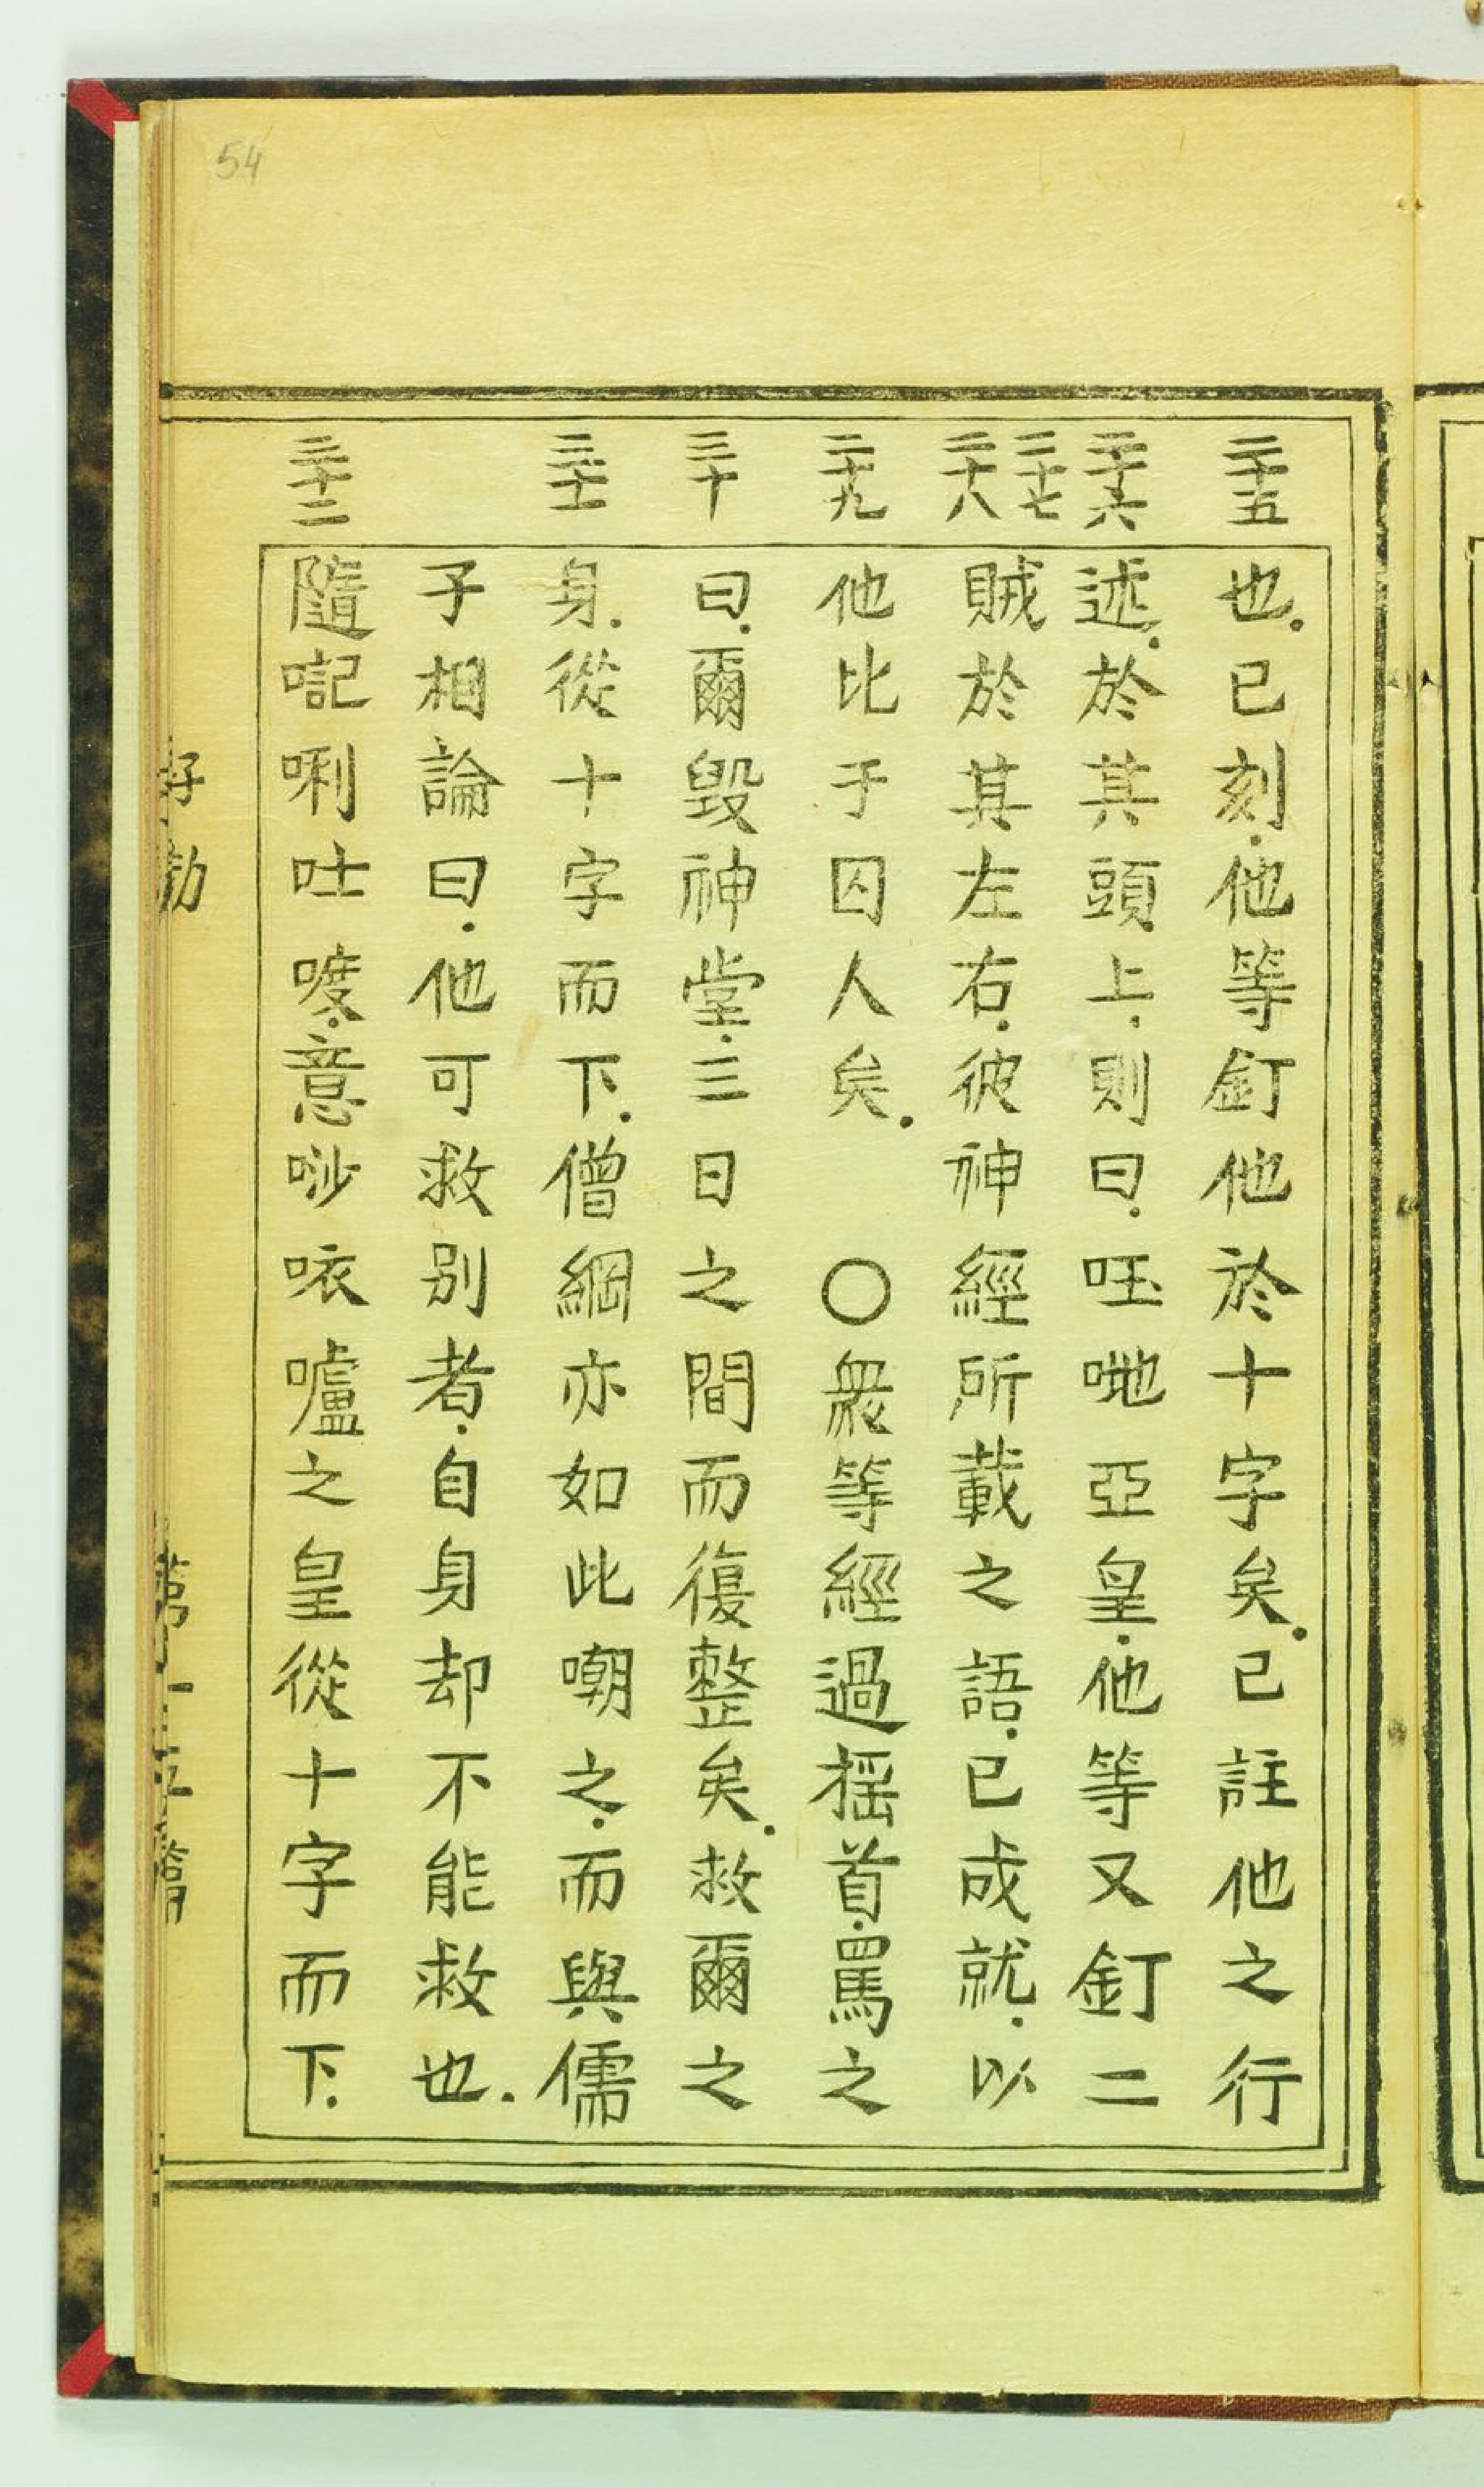 54
二十五
二十六
二十七
二十八
二十九
三十
三十一
三十二
也.已刻.他等釘他於十字矣.已註他之行
述.於其頭上.則曰.㕵哋亞皇.他等又釘二
賊於其左右.彼神經所載之語.已成就.以
他比于囚人矣.〇衆等經過揺首.罵之
曰.爾毀神堂.三日之間而復整矣.救爾之
身.從十字而下.僧綱亦如此嘲之.而與儒
子相論曰.他可救别者.自身却不能救也.
隨嘅唎吐喥.意唦咴嚧之皇從十字而下.